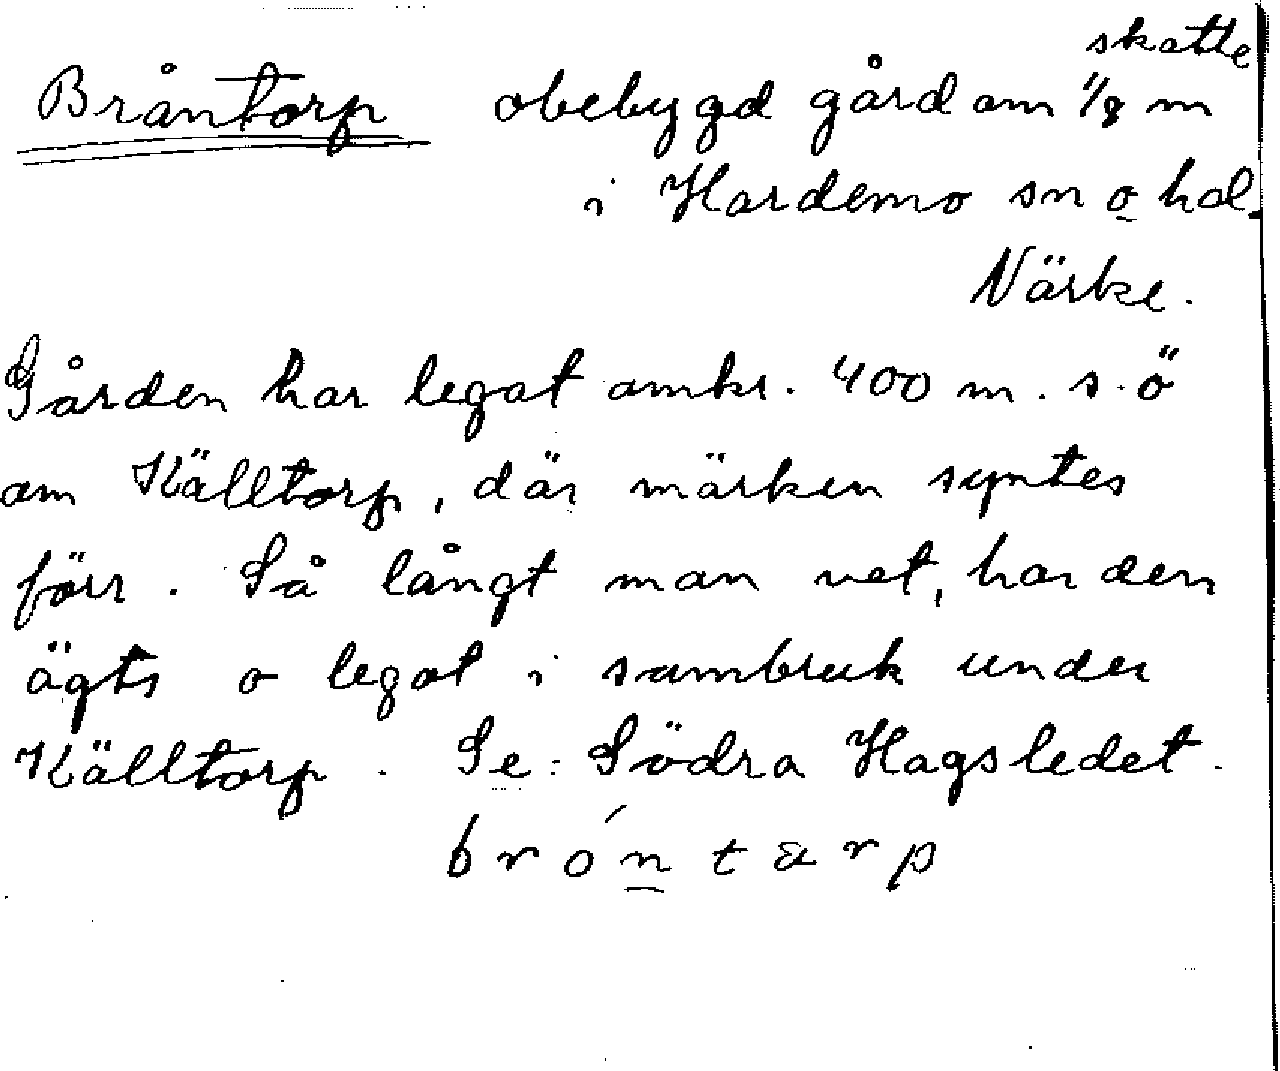 skatte
Bråntorp obebygd gård om 1/8 m
i Hardemo sn o hd.
Närke.
Gården har legat omkr. 400 m. s.ö
om Källtorp, där märken syntes
förr. Så långt man vet, har den
ägts o legat i sambruk under
Källtorp. Se: Södra Hagsledet.